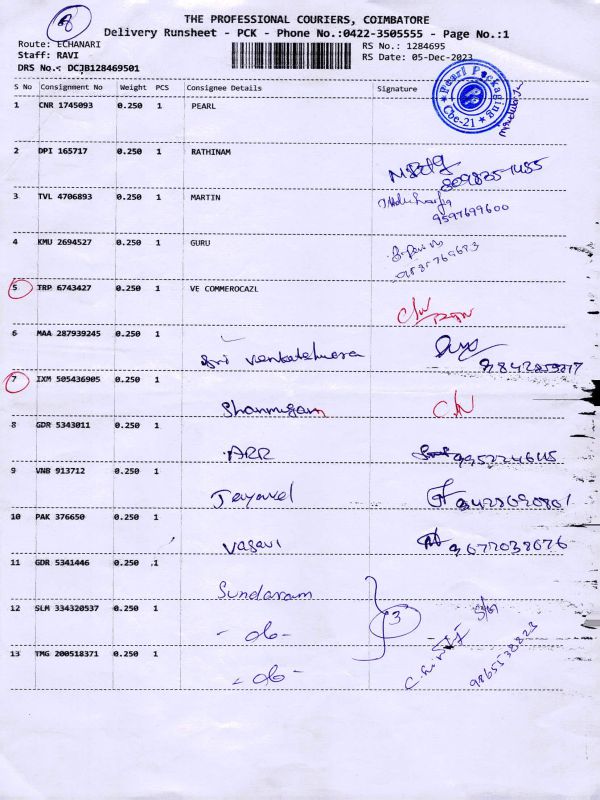 8
THE PROFESSIONAL COURIERS, COIMBATORE
Delivery Runsheet - PCK - Phone No.:0422-3505555 - Page No.:1
Route: ECHANARI RS No.: 1284695
Staff: RAVI RS Date: 05-Dec-2023
DRS No.: DCJB128469501
S No Consignment No Weight PCS Consignee Details Signature
1 CNR 1745093 0.250 1 PEARL
Pearl Packaging
Cbe-21
2 DPI 165717 0.250 1 RATHINAM
3 TVL 4706893 0.250 1 MARTIN
9597699600
4 KMU 2694527 0.250 1 GURU
5 TRP 6743427 0.250 1 VE COMMEROCAZL
6 MAA 287939245 0.250 1 Sri Venkateshwara
7 IXM 505436905 0.250 1 Shanmugam
8 GDR 5343011 0.250 1 ARR
9 VNB 913712 0.250 1 Jayavel
10 PAK 376650 0.250 1 Vasavi 9677038676
11 GDR 5341446 0.250 1 Sundaram
12 SLM 334320537 0.250 1 - do - 3
13 TMG 200518371 0.250 1 - do - 9865538823